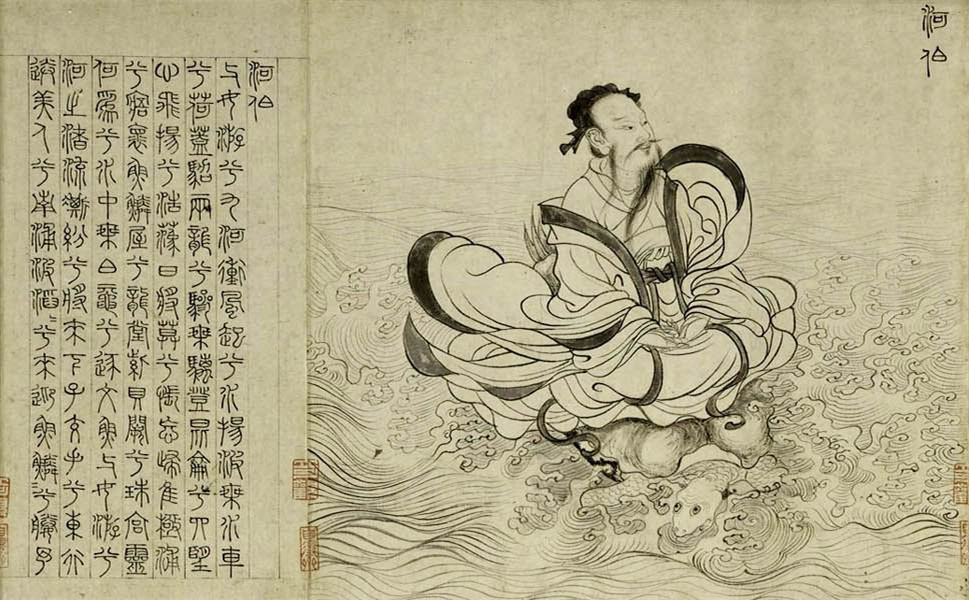 河伯
河伯
与女游兮九河衝風起兮水揚波乘水車
兮荷蓋駕兩龍兮驂乘螭登昆侖兮四望
心飛揚兮浩蕩日將莫兮悵忘歸隹極浦
兮寤懷魚鱗屋兮龍堂紫貝闕兮珠宮靈
何為兮水中乘白黿兮逐文魚与女游兮
河之渚流澌紛兮將來下子交手兮東行
送美人兮南浦波滔〻兮來迎魚鱗兮媵予